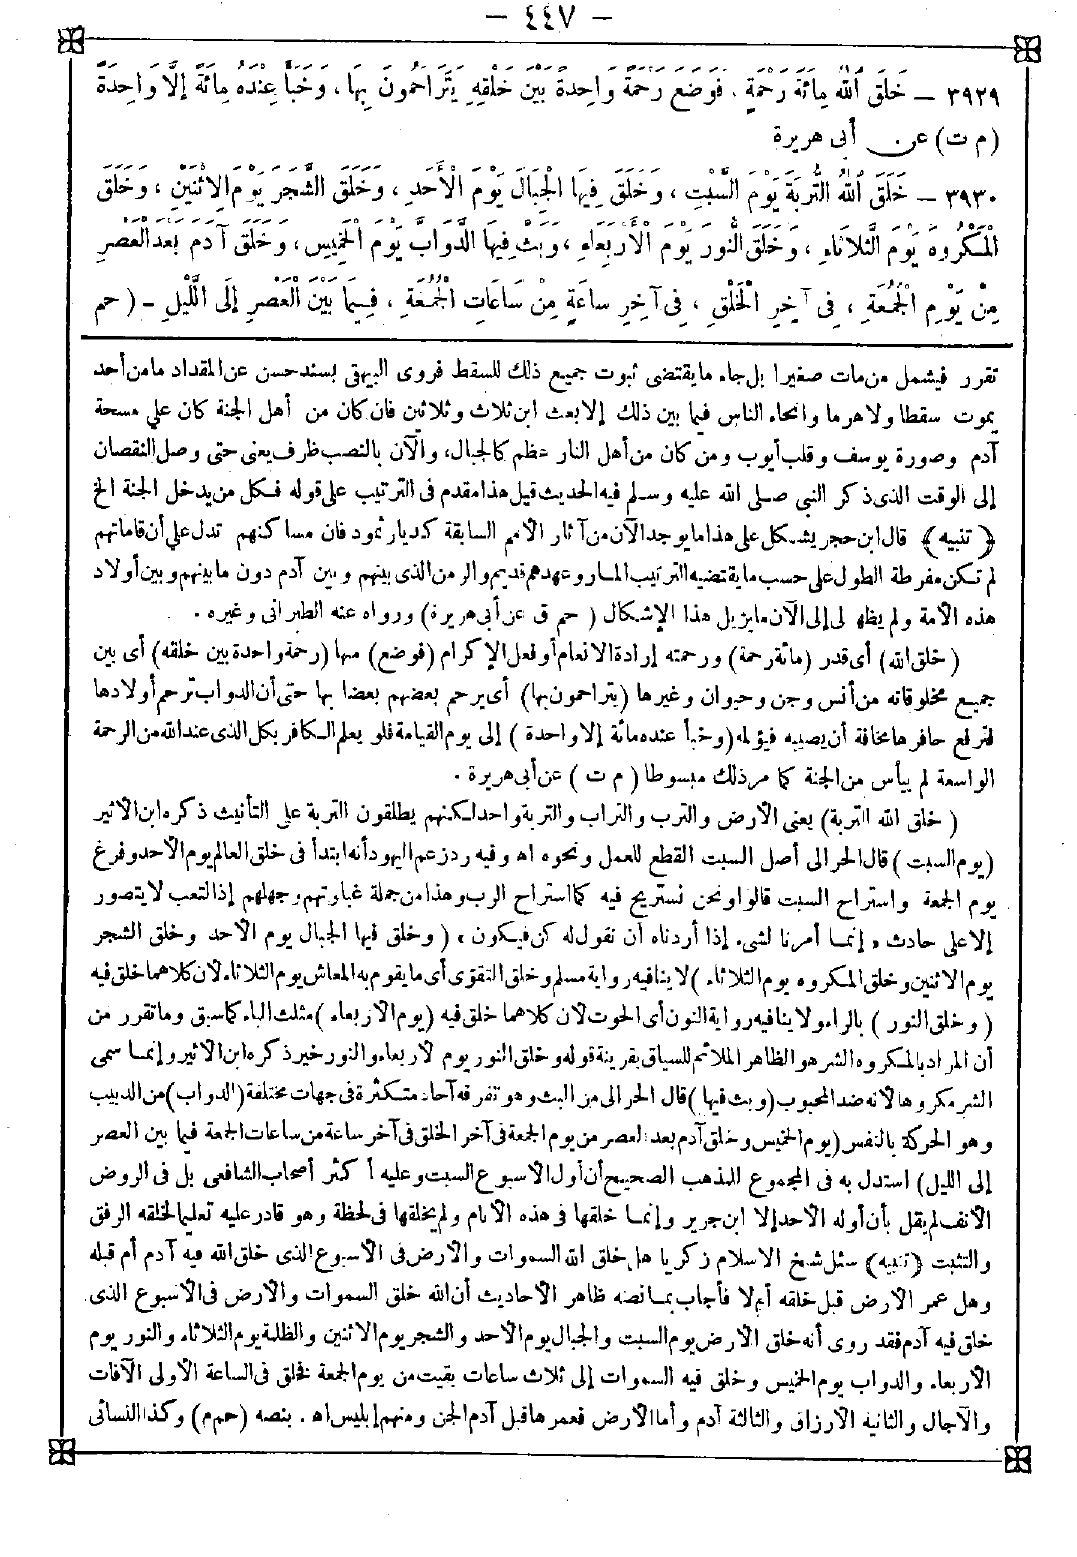 — ٤٤٧ —
٣٩٢٩ — خَلَقَ اللهُ مِائَةَ رَحْمَةٍ ، فَوَضَعَ رَحْمَةً وَاحِدَةً بَيْنَ خَلْقِهِ يَتَرَاحَمُونَ بِهَا ، وَخَبَأَ عِنْدَهُ مِائَةً إِلَّا وَاحِدَةً
(م ت) عن أبى هريرة
٣٩٣٠ — خَلَقَ اللهُ التُّرْبَةَ يَوْمَ السَّبْتِ ، وَخَلَقَ فِيهَا الْجِبَالَ يَوْمَ الْأَحَدِ ، وَخَلَقَ الشَّجَرَ يَوْمَ الِاثْنَيْنِ ، وَخَلَقَ
الْمَكْرُوهَ يَوْمَ الثَّلَاثَاءِ ، وَخَلَقَ النُّورَ يَوْمَ الْأَرْبَعَاءِ ، وَبَثَّ فِيهَا الدَّوَابَّ يَوْمَ الْخَمِيسِ ، وَخَلَقَ آدَمَ بَعْدَ الْعَصْرِ
مِنْ يَوْمِ الْجُمُعَةِ ، فِى آخِرِ الْخَلْقِ ، فِى آخِرِ سَاعَةٍ مِنْ سَاعَاتِ الْجُمُعَةِ ، فِيمَا بَيْنَ الْعَصْرِ إِلَى اللَّيْلِ - (حم
تقرر فيشمل من مات صغيرا بل جاء ما يقتضى ثبوت جميع ذلك للسقط فروى البيهقى بسند حسن عن المقداد ما من أحد
يموت سقطا ولا هرما وانحاء الناس فيما بين ذلك إلا بعث ابن ثلاث وثلاثين فان كان من أهل الجنة كان على مسحة
آدم وصورة يوسف وقلب أيوب ومن كان من أهل النار عظم كالجبال، والآن بالنصب ظرف يعنى حتى وصل النقصان
إلى الوقت الذى ذكر النبى صلى الله عليه وسلم فيه الحديث قيل هذا مقدم فى الترتيب على قوله فكل من يدخل الجنة الخ
﴿ تنبيه ﴾ قال ابن حجر يشكل على هذا ما يوجد الآن من آثار الأمم السابقة كديار ثمود فان مساكنهم تدل على أن قاماتهم
لم تكن مفرطة الطول على حسب ما يقتضيه الترتيب المار وعهدهم قديم والزمن الذى بينهم وبين آدم دون ما بينهم وبين أولاد
هذه الأمة ولم يظهر لى إلى الآن ما يزيل هذا الإشكال ( حم ق عن أبى هريرة) ورواه عنه الطبرانى وغيره .
(خلق الله) أى قدر (مائة رحمة) ورحمته إرادة الانعام أو فعل الإكرام (فوضع) منها (رحمة واحدة بين خلقه) أى بين
جميع مخلوقاته من أنس وجن وحيوان وغيرها (يتراحمون بها) أى يرحم بعضهم بعضا بها حتى أن الدواب ترحم أولادها
فترفع حافرها مخافة أن يصيبه فيؤلمه (وخبأ عنده مائة إلا واحدة ) إلى يوم القيامة فلو يعلم الكافر بكل الذى عند الله من الرحمة
الواسعة لم ييأس من الجنة كما مر ذلك مبسوطا ( م ت ) عن أبى هريرة .
( خلق الله التربة) يعنى الأرض والترب والتراب والتربة واحد لكنهم يطلقون التربة على التأنيث ذكره ابن الاثير
(يوم السبت ) قال الحرالى أصل السبت القطع للعمل ونحوه اه وفيه رد زعم اليهود أنه ابتدأ فى خلق العالم يوم الأحد وفرغ
يوم الجمعة واستراح السبت قالوا ونحن نستريح فيه كما استراح الرب وهذا من جملة غباوتهم وجهلهم إذ التعب لا يتصور
إلا على حادث « إنما أمرنا لشىء إذا أردناه أن نقول له كن فيكون » ( وخلق فيها الجبال يوم الاحد وخلق الشجر
يوم الاثنين وخلق المكروه يوم الثلاثاء ) لا ينافيه رواية مسلم وخلق التقوى أى ما يقوم به المعاش يوم الثلاثاء لان كلاهما خلق فيه
( وخلق النور ) بالراء ولا ينافيه رواية النون أى الحوت لان كلاهما خلق فيه (يوم الاربعاء ) مثلث الباء كما سبق وما تقرر من
أن المراد بالمكروه الشر هو الظاهر الملائم للسياق بقرينة قوله وخلق النور يوم لاربعاء والنور خير ذكره ابن الاثير وإنما سمى
الشر مكروها لانه ضد المحبوب (وبث فيها ) قال الحرالى من البث وهو تفرقة آحاد متكثرة فى جهات مختلفة (الدواب) من الدبيب
وهو الحركة بالنفس (يوم الخميس وخلق آدم بعد العصر من يوم الجمعة فى آخر الخلق فى آخر ساعة من ساعات الجمعة فيما بين العصر
إلى الليل) استدل به فى المجموع للمذهب الصحيح أن أول الاسبوع السبت وعليه أكثر أصحاب الشافعى بل فى الروض
الانف لم يقل بأن أوله الاحد إلا ابن جرير وإنما خلقها فى هذه الأيام ولم يخلقها فى لحظة وهو قادر عليه تعليما لخلقه الرفق
والتثبت (تنبيه) سئل شيخ الاسلام زكريا هل خلق الله السموات والارض فى الاسبوع الذى خلق الله فيه آدم أم قبله
وهل عمر الارض قبل خلقه أم لا فأجاب بما نصه ظاهر الاحاديث أن الله خلق السموات والارض فى الاسبوع الذى
خلق فيه آدم فقد روى أنه خلق الارض يوم السبت والجبال يوم الاحد والشجر يوم الاثنين والظلمة يوم الثلاثاء والنور يوم
الأربعاء والدواب يوم الخميس وخلق فيه السموات إلى ثلاث ساعات بقيت من يوم الجمعة فخلق فى الساعة الأولى الآفات
والآجال والثانية الارزاق والثالثة آدم وأما الأرض فعمرها قبل آدم الجن ومنهم إبليس اه . بنصه (حم م) وكذا النسائى